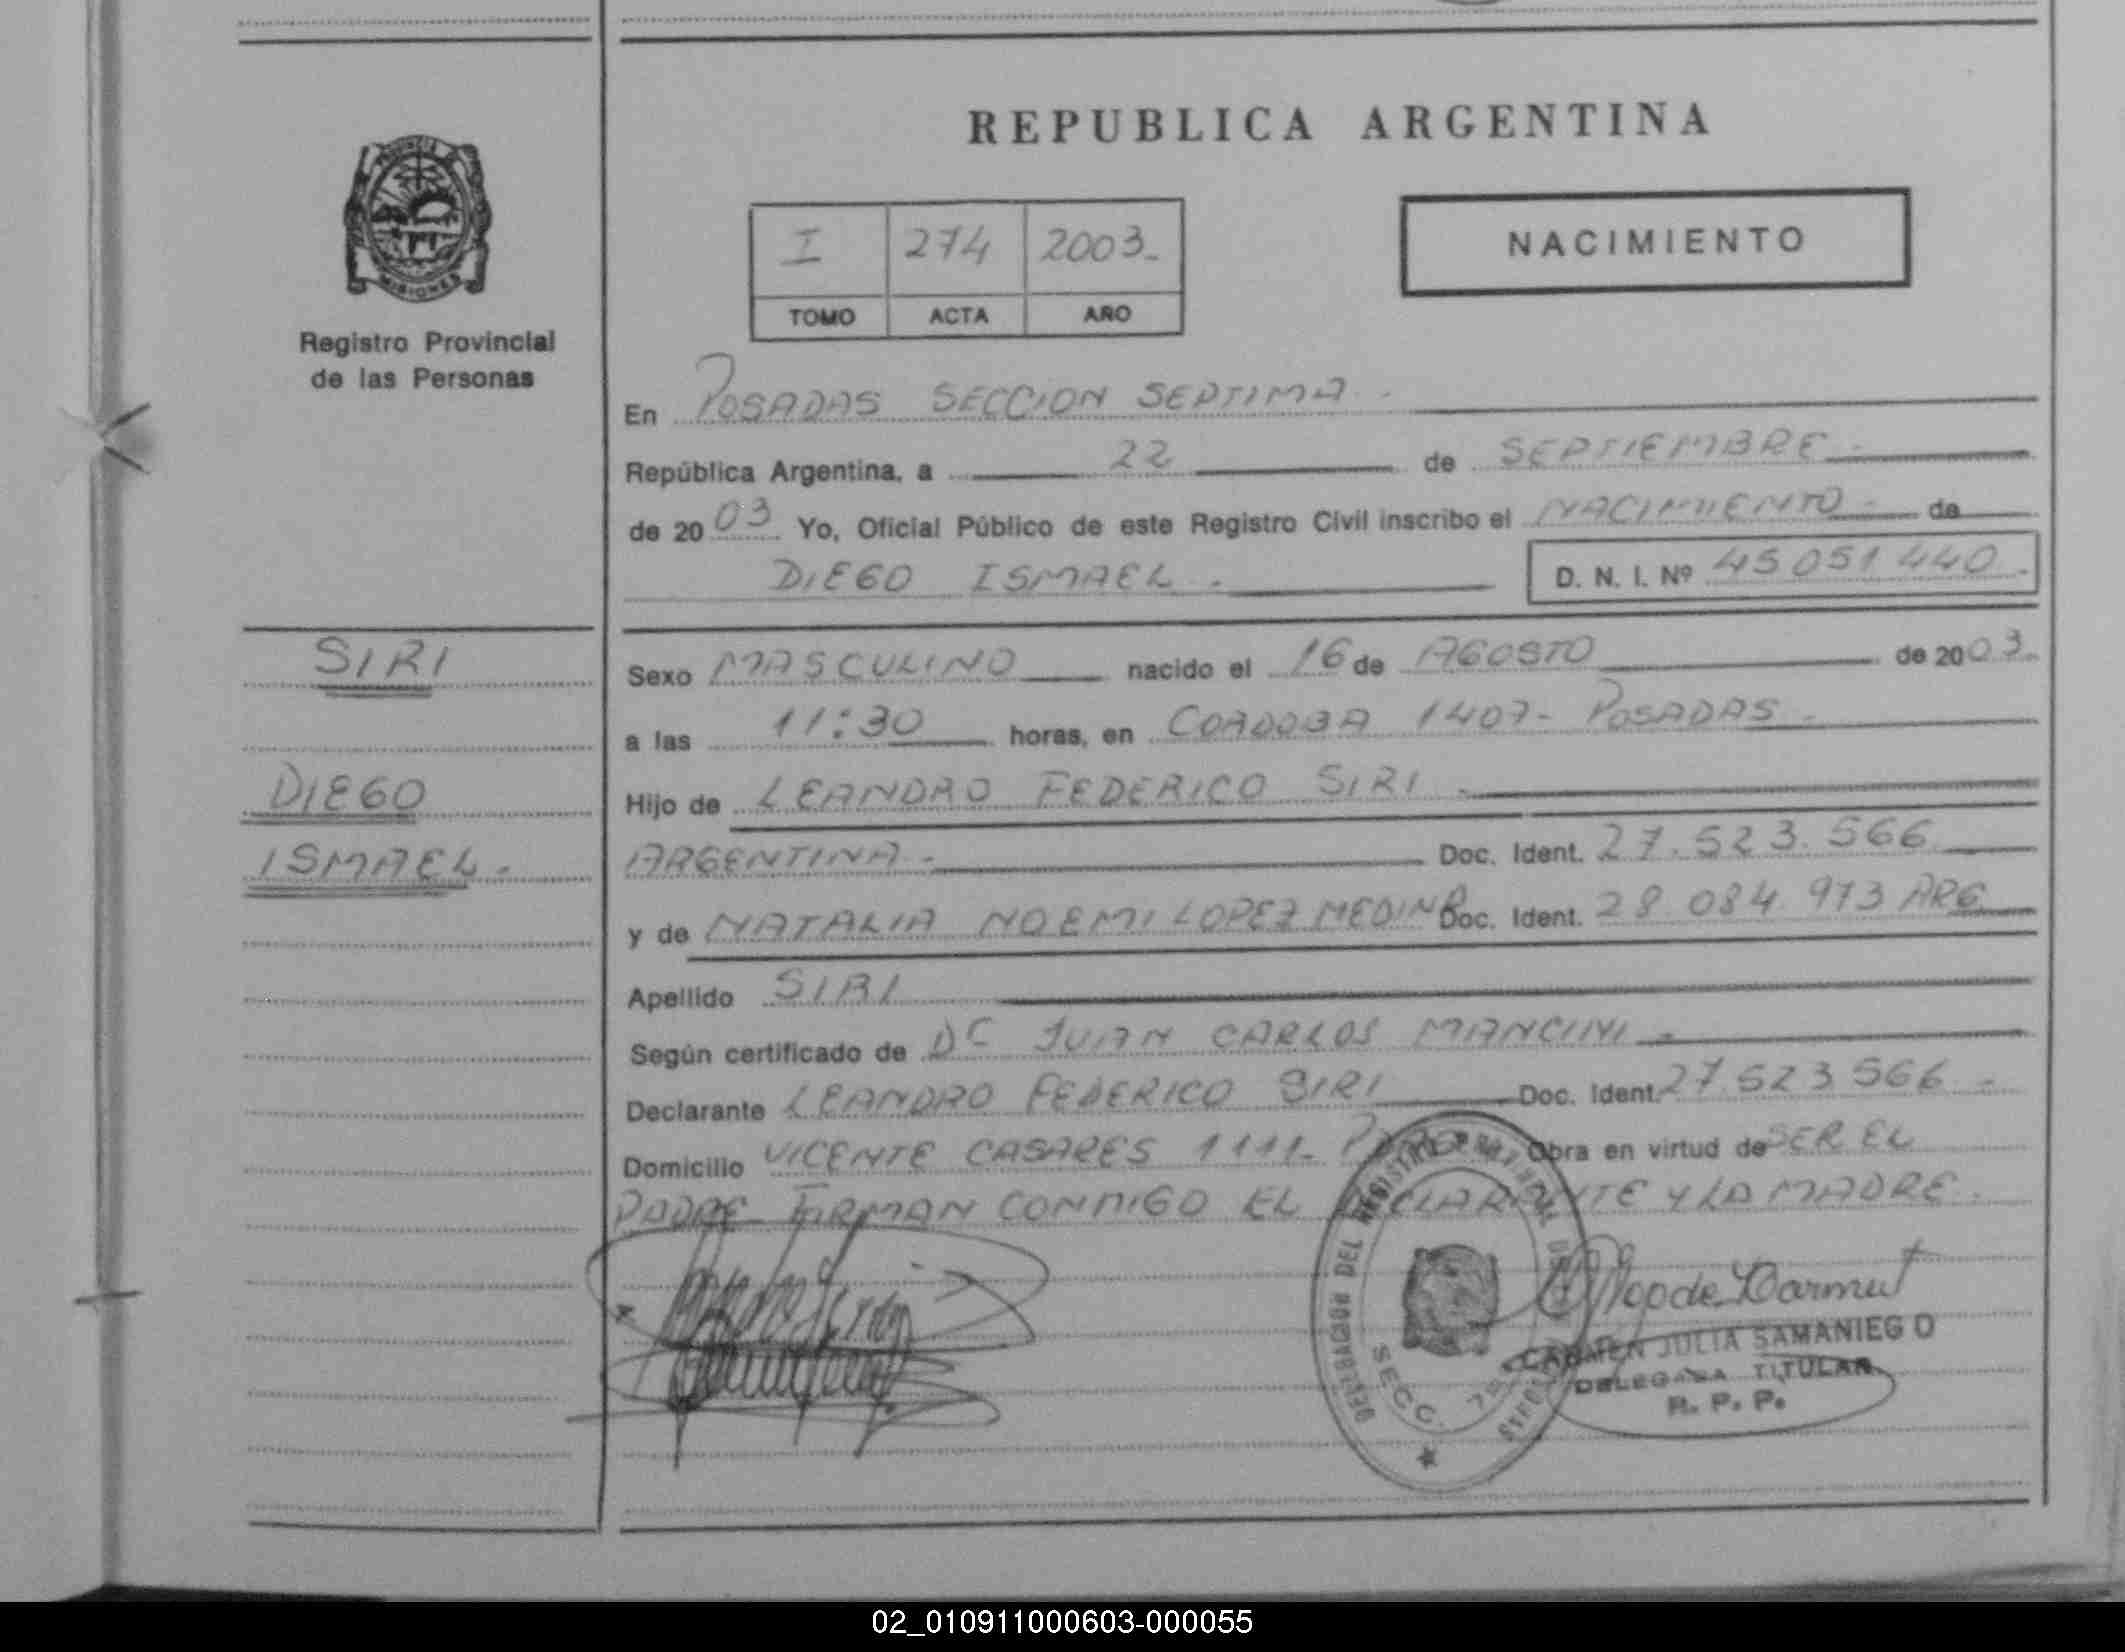 REPUBLICA ARGENTINA
PROVINCIA DE
MISIONES
Registro Provincial
de las Personas
I 274 2003.-
TOMO ACTA AÑO
NACIMIENTO
En POSADAS SECCION SEPTIMA.-
República Argentina, a 22 de SEPTIEMBRE.-
de 2003 Yo, Oficial Público de este Registro Civil inscribo el NACIMIENTO.- de
DIEGO ISMAEL.-
D. N. I. Nº 45 051 440.-
SIRI
DIEGO
ISMAEL.-
Sexo MASCULINO nacido el 16 de AGOSTO de 2003.-
a las 11:30 horas, en CORDOBA 1407- POSADAS.-
Hijo de LEANDRO FEDERICO SIRI.-
ARGENTINA.- Doc. Ident. 27.523.566
y de NATALIA NOEMI LOPEZ MEDINA Doc. Ident. 28 084 973 ARG
Apellido SIRI
Según certificado de DC JUAN CARLOS MANCINI.-
Declarante LEANDRO FEDERICO SIRI Doc. Ident. 27 523 566.-
Domicilio VICENTE CASARES 1111- Obra en virtud de SER EL
PADRE FIRMAN CONMIGO EL DECLARANTE Y LA MADRE.
DELEGACION DEL REGISTRO PROVINCIAL DE LAS PERSONAS
SECC. 7ª
CARMEN JULIA SAMANIEGO
DELEGADA TITULAR
R. P. P.
02_010911000603-000055